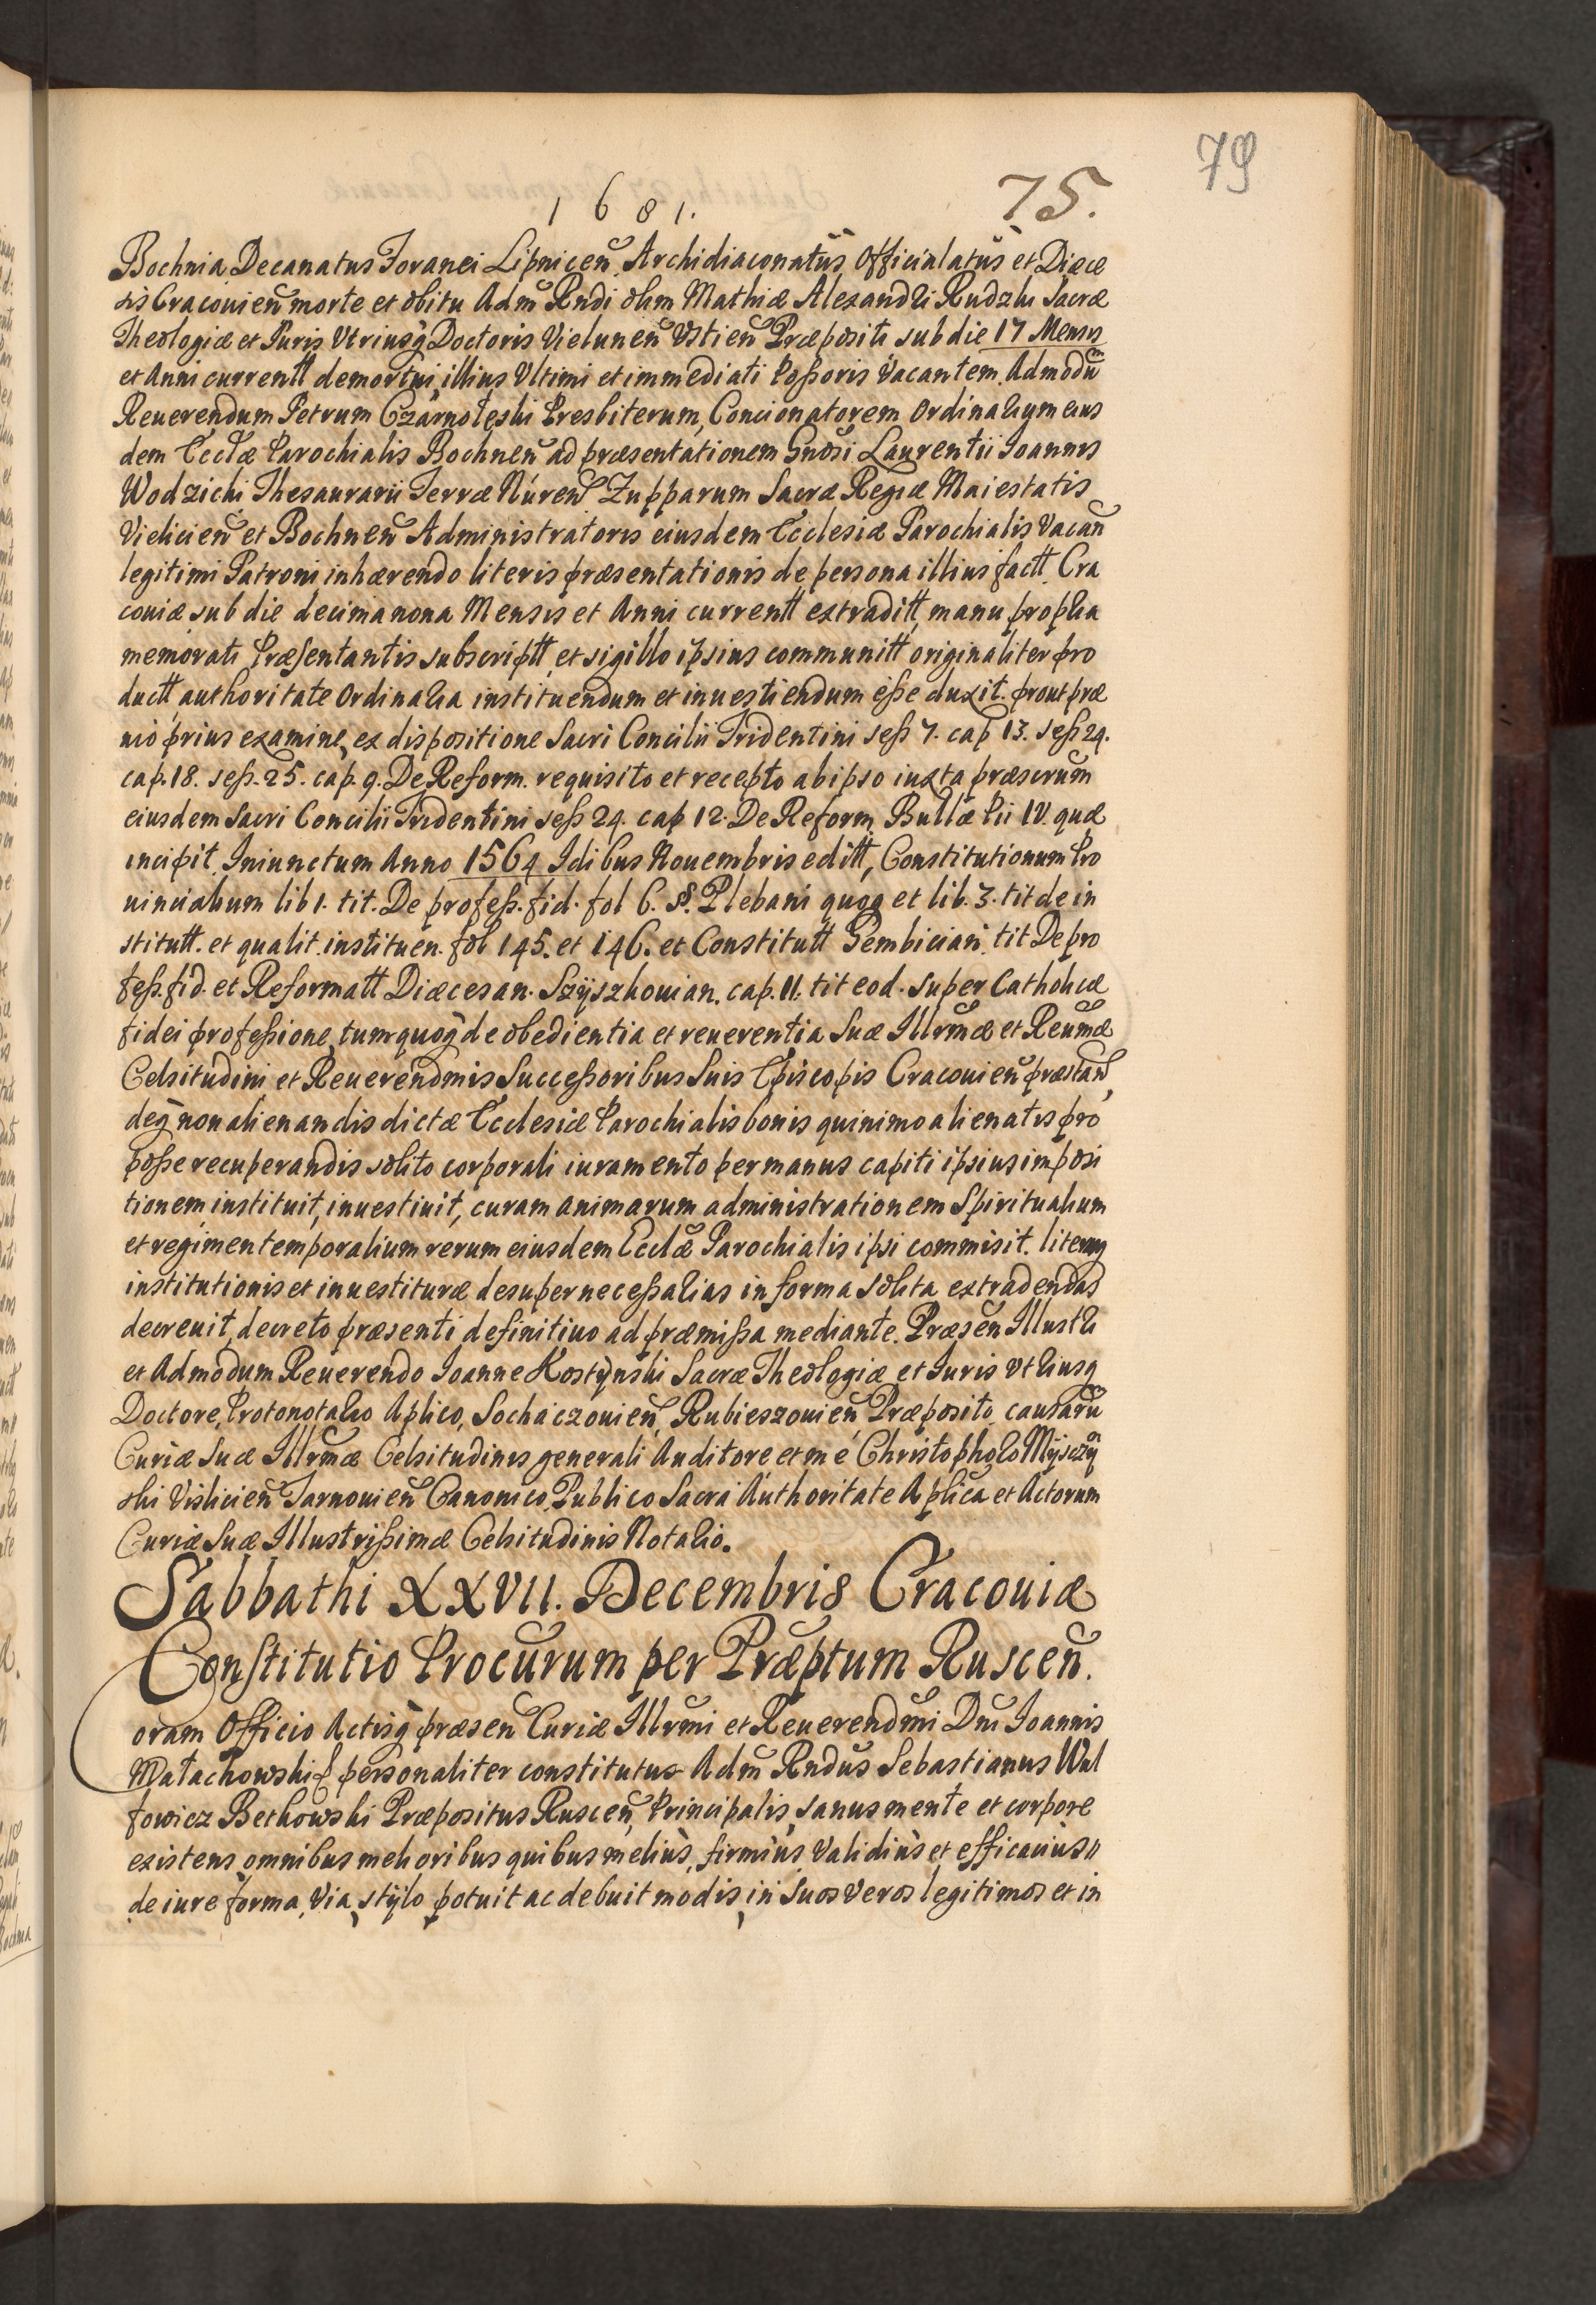 79
1681. 75.
Bochnia Decanatus Foranei Lipnicen̄. Archidiaconatus Officialatus et Diæce
sis Cracouien̄ morte et obitu Adm̄ Rndi olim Mathiæ Alexandri Rudzki Sacræ
Theologiæ et Iuris Vtriusq̄ Doctoris Vielunen̄ Vstien̄ Præpositi sub die 17 Mensis
et Anni currentt demortui, illius Vltimi et immediati Poßoris Vacantem. Admodū
Reuerendum Petrum Czarnołęski Presbiterum, Concionatorem Ordinarium eius
dem Ecclæ Parochialis Bochnen̄ ad præsentationem Gnosi Laurentii Ioannis
Wodzicki Thesaurarii Terræ Nuren̄ Zupparum Sacræ Regiæ Maiestatis
Vielicien̄ et Bochnen̄ Administratoris eiusdem Ecclesiæ Parochialis Vacan̄
legitimi Patroni inhærendo literis præsentationis de persona illius factt. Cra
couiæ sub die decimanona Mensis et Anni currentt extraditt, manu propria
memorati Præsentantis subscriptt, et sigillo ipsius communitt originaliter pro
ductt, authoritate Ordinaria instituendum et inuestiendum eße duxit. prout præ
uio prius examine, ex dispositione Sacri Concilii Tridentini seß 7. cap 13. seß 24.
cap. 18. seß. 25. cap. 9. De Reform. requisito et recepto ab ipso iuxta præscrum
eiusdem Sacri Concilii Tridentini seß 24. cap 12. De Reform. Bullæ Pii IV. quæ
incipit. Iniunctum Anno 1564 Idibus Nouembris editt, Constitutionum Pro
uincialium lib 1. tit. De profeß. fid. fol 6. §. Plebani quoq et lib. 3. tit de in
stitutt. et qualit. instituen. fol 145. et 146. et Constitutt Gembician. tit De pro
feß. fid. et Reformatt Diæcesan. Szÿszkouian. cap. II. tit eod. super Catholicæ
fidei profeßione, tum quoq̄ de obedientia et reuerentia Suæ Illrmæ et Reumæ
Celsitudini et Reuerendmis Succeßoribus Suis Episcopis Cracouien̄ præstan̄,
deq̄ non alienandis dictæ Ecclesiæ Parochialis bonis quinimo alienatis pro
poße recuperandis solito corporali iuramento per manus capiti ipsius imposi
tionem instituit, inuestiuit, curam animarum administrationem Spiritualium
et regimen temporalium rerum eiusdem Ecclæ Parochialis ipsi commisit. literasq
institutionis et inuestituræ desuper neceßarias in forma solita extradendas
decreuit, decreto præsenti definitiuo ad præmißa mediante. Præsen̄ Illustri
et Admodum Reuerendo Ioanne Kostÿnski Sacræ Theologiæ et Iuris vtriusq
Doctore, Protonotario Aplico, Sochaczouien̄, Rubieszouien̄ Præposito, causarū
Curiæ Suæ Illrmæ Celsitudinis generali Auditore et me Christophoro Mÿsczÿn
ski Vislicien̄ Tarnouien̄ Canonico, Publico Sacra Authoritate Aplica et Actorum
Curiæ Suæ Illustrißimæ Celsitudinis Notario.
Sabbathi XXVII. Decembris Cracouiæ
Constitutio Procurum per Præptum Ruscen̄.
Coram Officio Actisq̄ præsen̄ Curiæ Illrmi et Reuerendmi Dni Ioannis
Małachowski personaliter constitutus Adm̄ Rndus Sebastianus Wal
fowicz Betkowski Præpositus Ruscen̄, Principalis, sanus mente et corpore
existens omnibus melioribus quibus melius, firmius, validius et efficacius
de iure forma, via, stÿlo potuit ac debuit modis, in Suos veros legitimos et in